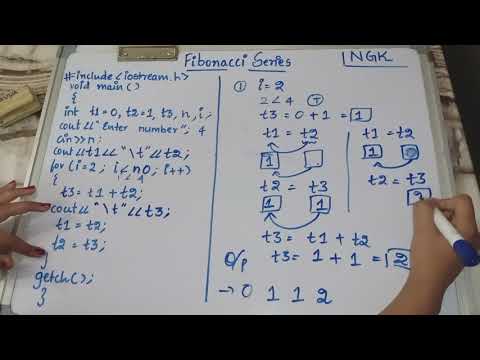 Fibonacci Series
NGK
#include<iostream.h>
void main()
{
int t1=0, t2=1, t3, n, i;
cout<<"Enter number"; 4
cin>>n;
cout<<t1<<"\t"<<t2;
for(i=2; i<n; i++)
{
t3=t1+t2;
cout<<"\t"<<t3;
t1=t2;
t2=t3;
}
getch();
}
① i=2
2<4 T
t3=0+1=1
t1=t2
1
t2=t3
1 1
t3=t1+t2
O/p t3=1+1=2
→0 1 1 2
t1=t2
1
t2=t3